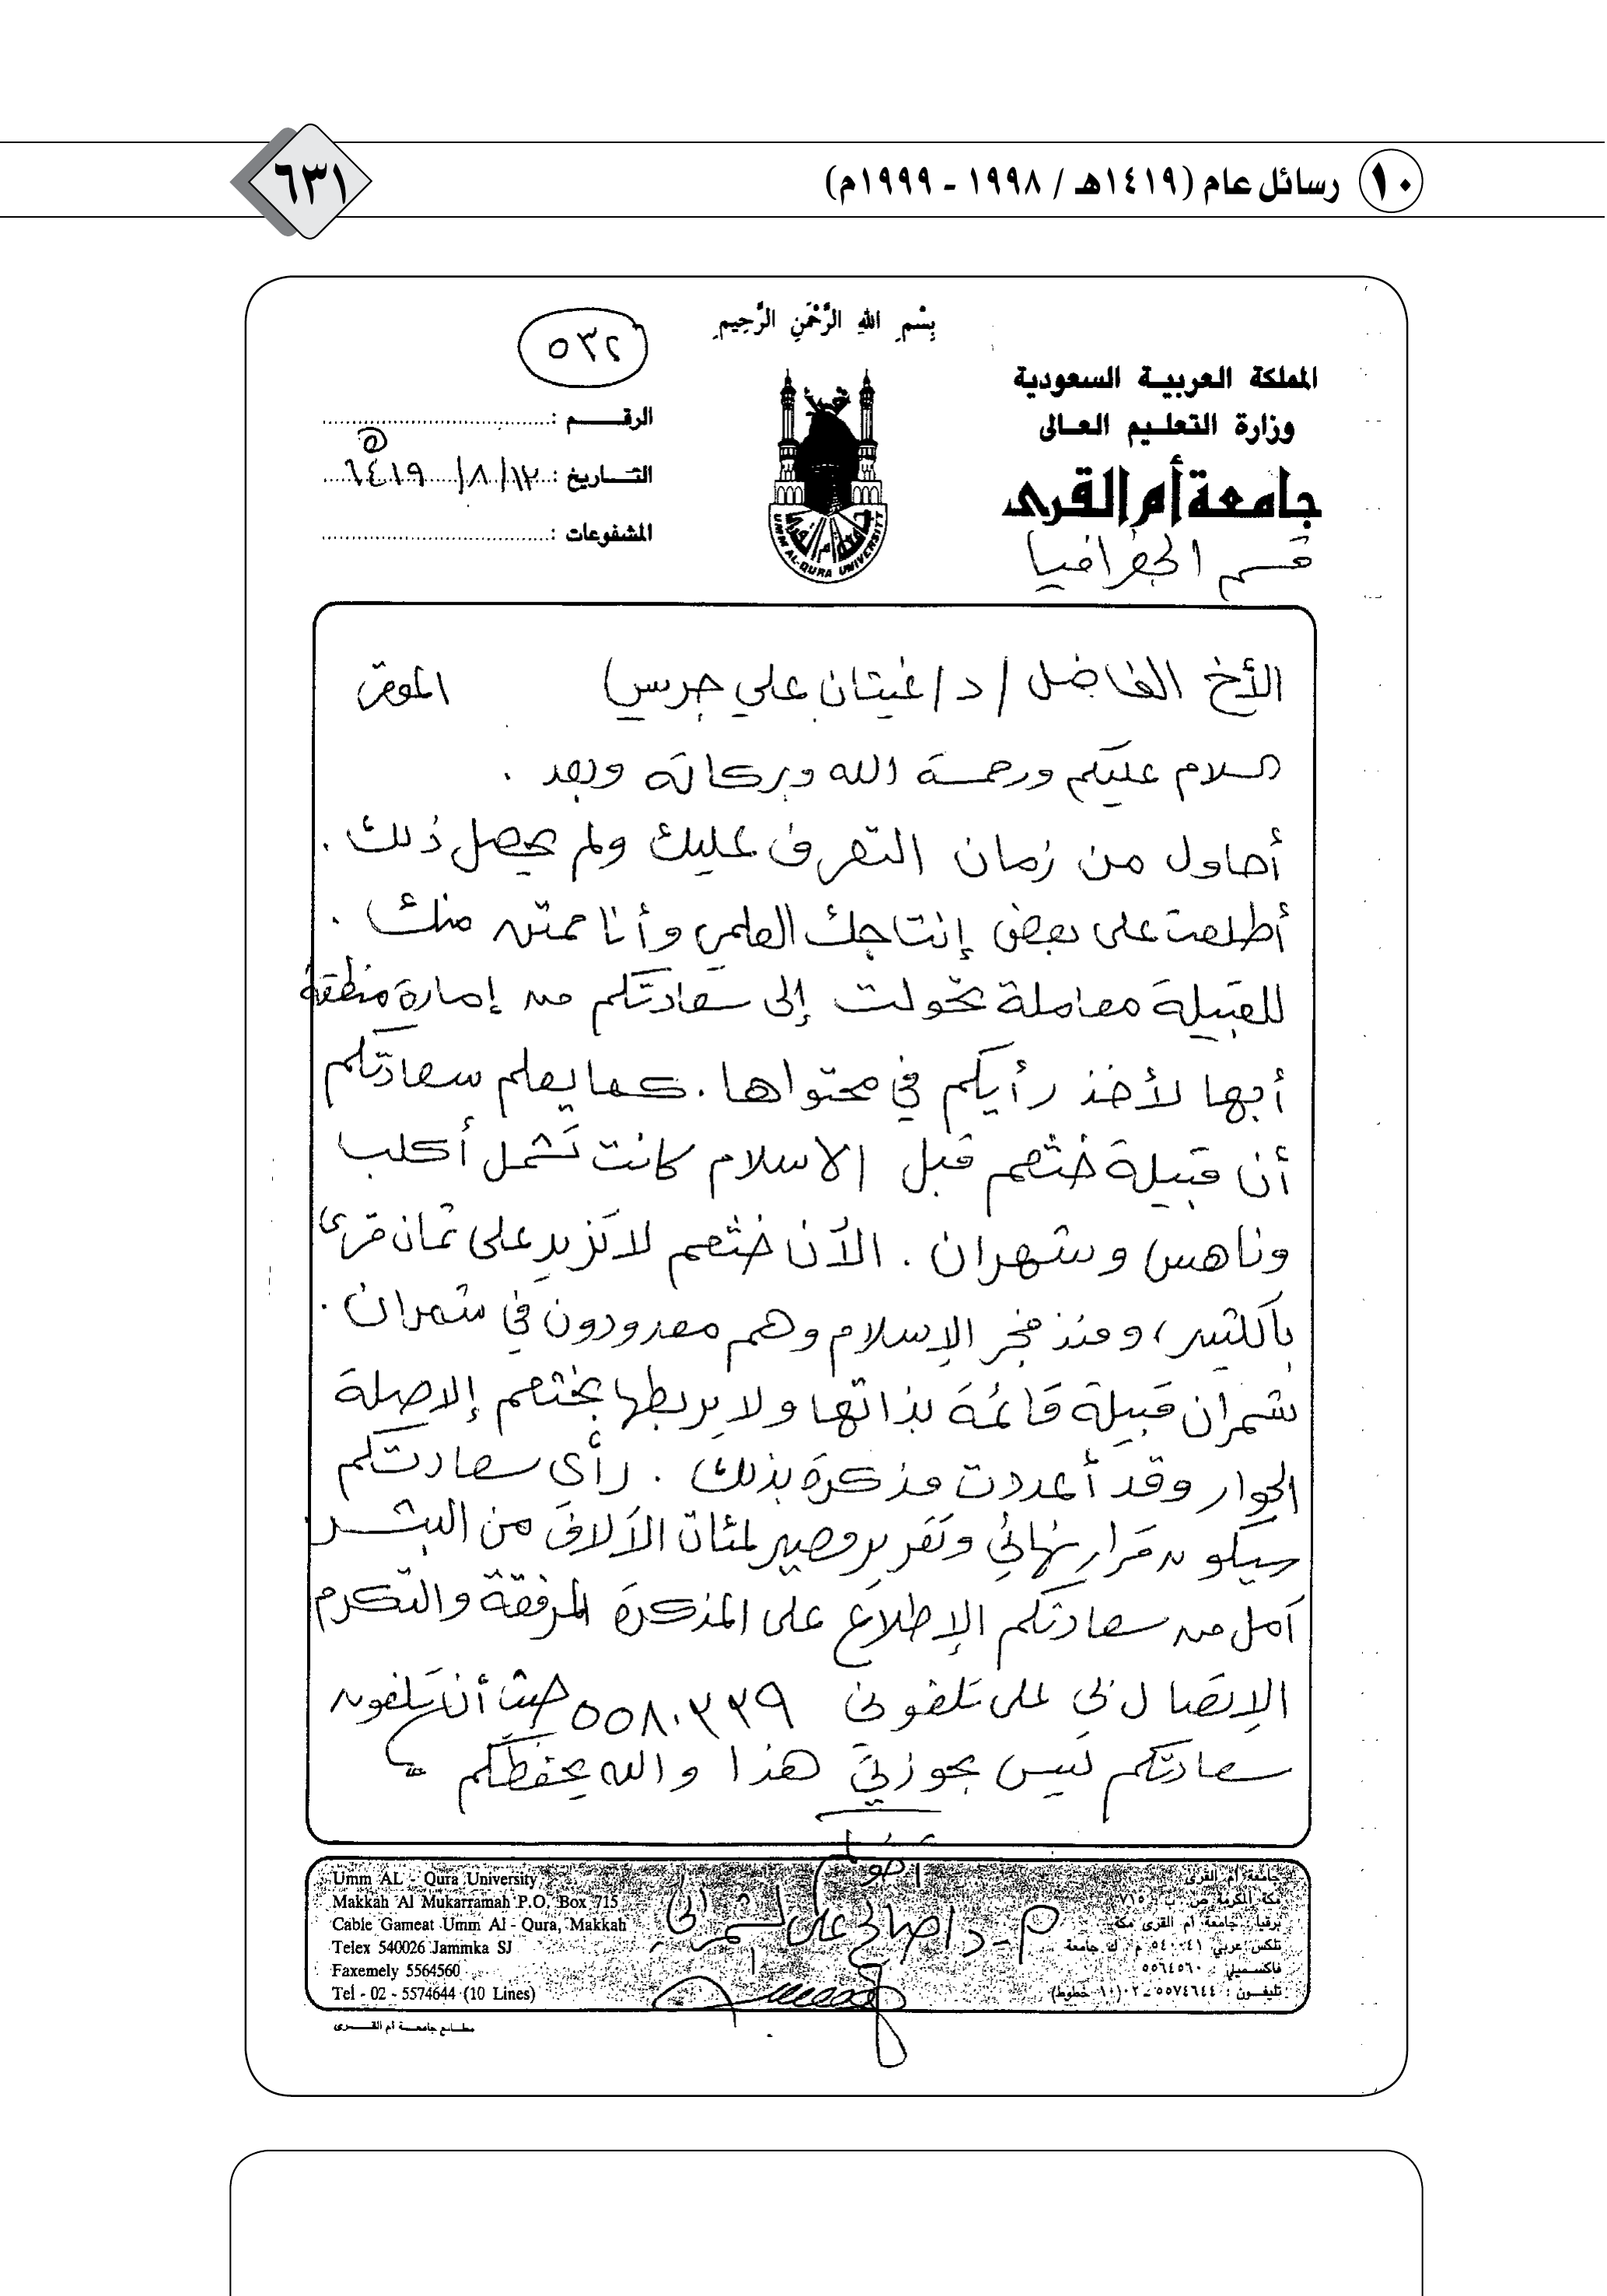 ١٠ رسائل عام (١٤١٩هـ / ١٩٩٨ - ١٩٩٩م)
٦٣١
بِسْمِ اللهِ الرَّحْمَنِ الرَّحِيمِ
٥٣٢
المملكة العربيـة السعودية
وزارة التعليم العالى
جامعة أم القرى
قسم الجغرافيا
UMM AL-QURA UNIVERSITY
الرقـــم :
التــاريخ : ١٢/٨/١٤١٩هـ
المشفوعات :
الأخ الفاضل / د/ غيثان علي جريس الموقر
السلام عليكم ورحمة الله وبركاته وبعد .
أحاول من زمان التعرف عليك ولم يحصل ذلك .
أطلعت على بعض إنتاجك العلمي وأنا ممتن منك .
للقبيلة معاملة تحولت إلى سعادتكم من إمارة منطقة
أبها لأخذ رأيكم في محتواها . كما يعلم سعادتكم
أن قبيلة خثعم قبل الاسلام كانت تشمل أكلب
وناهس وشهران . الآن خثعم لا تزيد على ثمان قرى
بالكثير ، ومنذ فجر الإسلام وهم معدودون في شمران .
شمران قبيلة قائمة بذاتها ولا يربطها بخثعم إلا صلة
الجوار وقد أعددت مذكرة بذلك . رأى سعادتكم
سيكون قرار نهائي وتقرير مصير لمئات الآلاف من البشر
آمل من سعادتكم الإطلاع على المذكرة المرفقة والتكرم
الإتصال بي على تلفوني ٥٥٨٠٣٣٩ حيث أن تلفون
سعادتكم ليس بحوزتي هذا والله يحفظكم
أخوك
م - د/ صالح علي الشمراني
جامعة أم القرى
مكة المكرمة ص . ب : ٧١٥
برقيا : جامعة أم القرى مكة
تلكس عربي ٥٤٠٠٤١ م . ك جامعة
فاكسميلي : ٥٥٦٤٥٦٠
تليفـون : ٥٥٧٤٦٤٤ - ٠٢ (١٠ خطوط)
Umm AL - Qura University
Makkah Al Mukarramah P.O. Box 715
Cable Gameat Umm Al - Qura, Makkah
Telex 540026 Jammka SJ
Faxemely 5564560
Tel - 02 - 5574644 (10 Lines)
مطـابع جامعـة أم القــرى